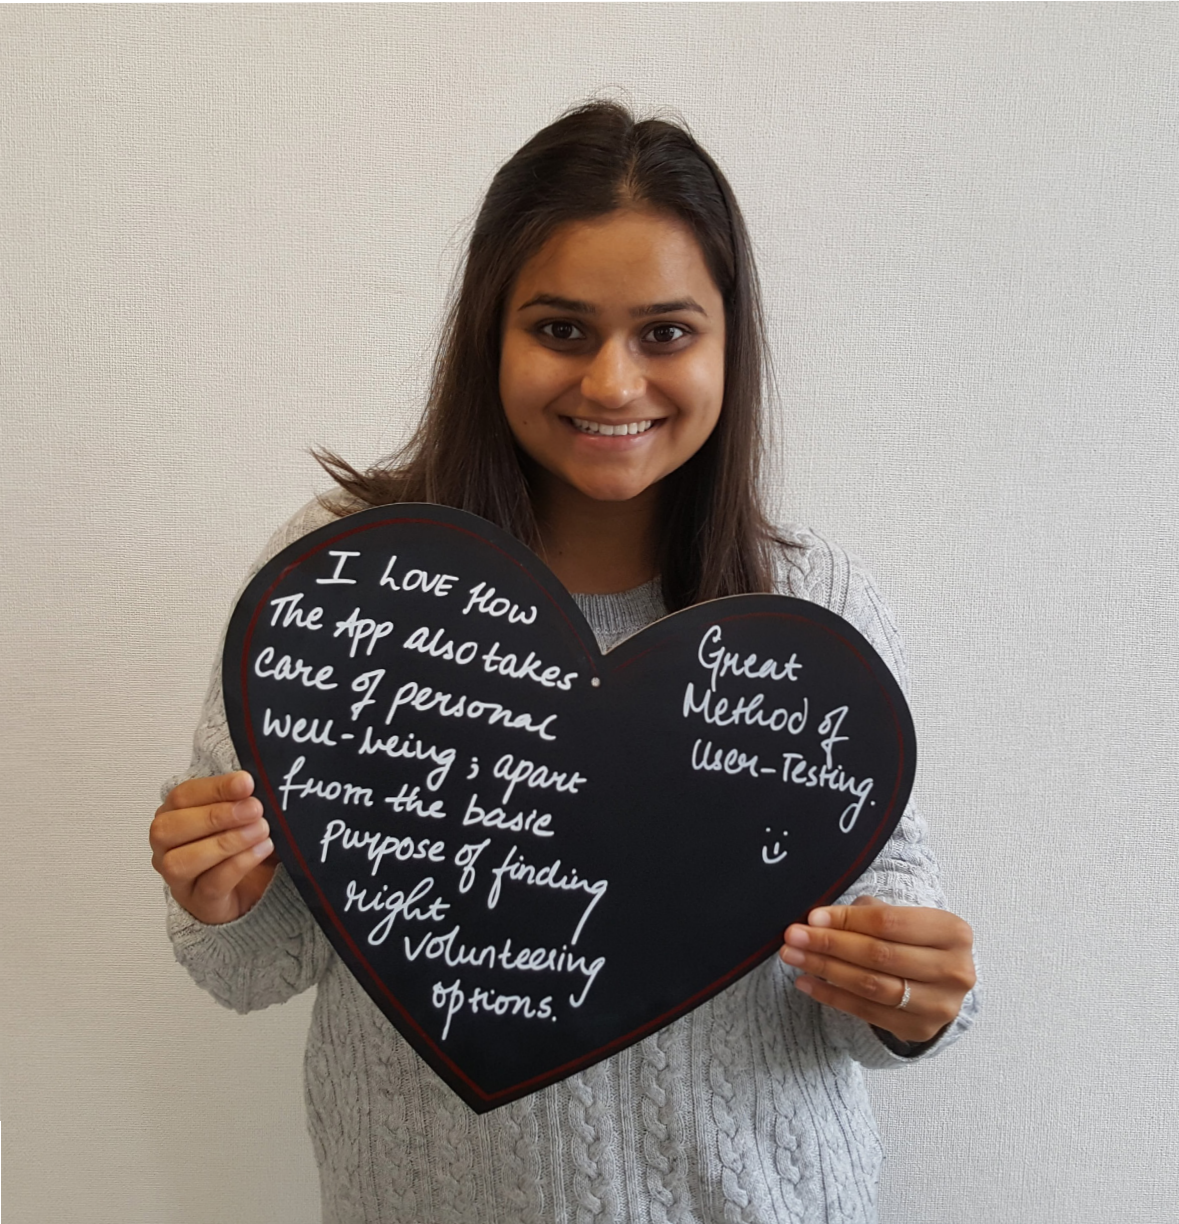 I LOVE How
The App also takes
care of personal
well-being ; apart
from the basic
purpose of finding
right
volunteering
options.
Great
Method of
User-Testing.